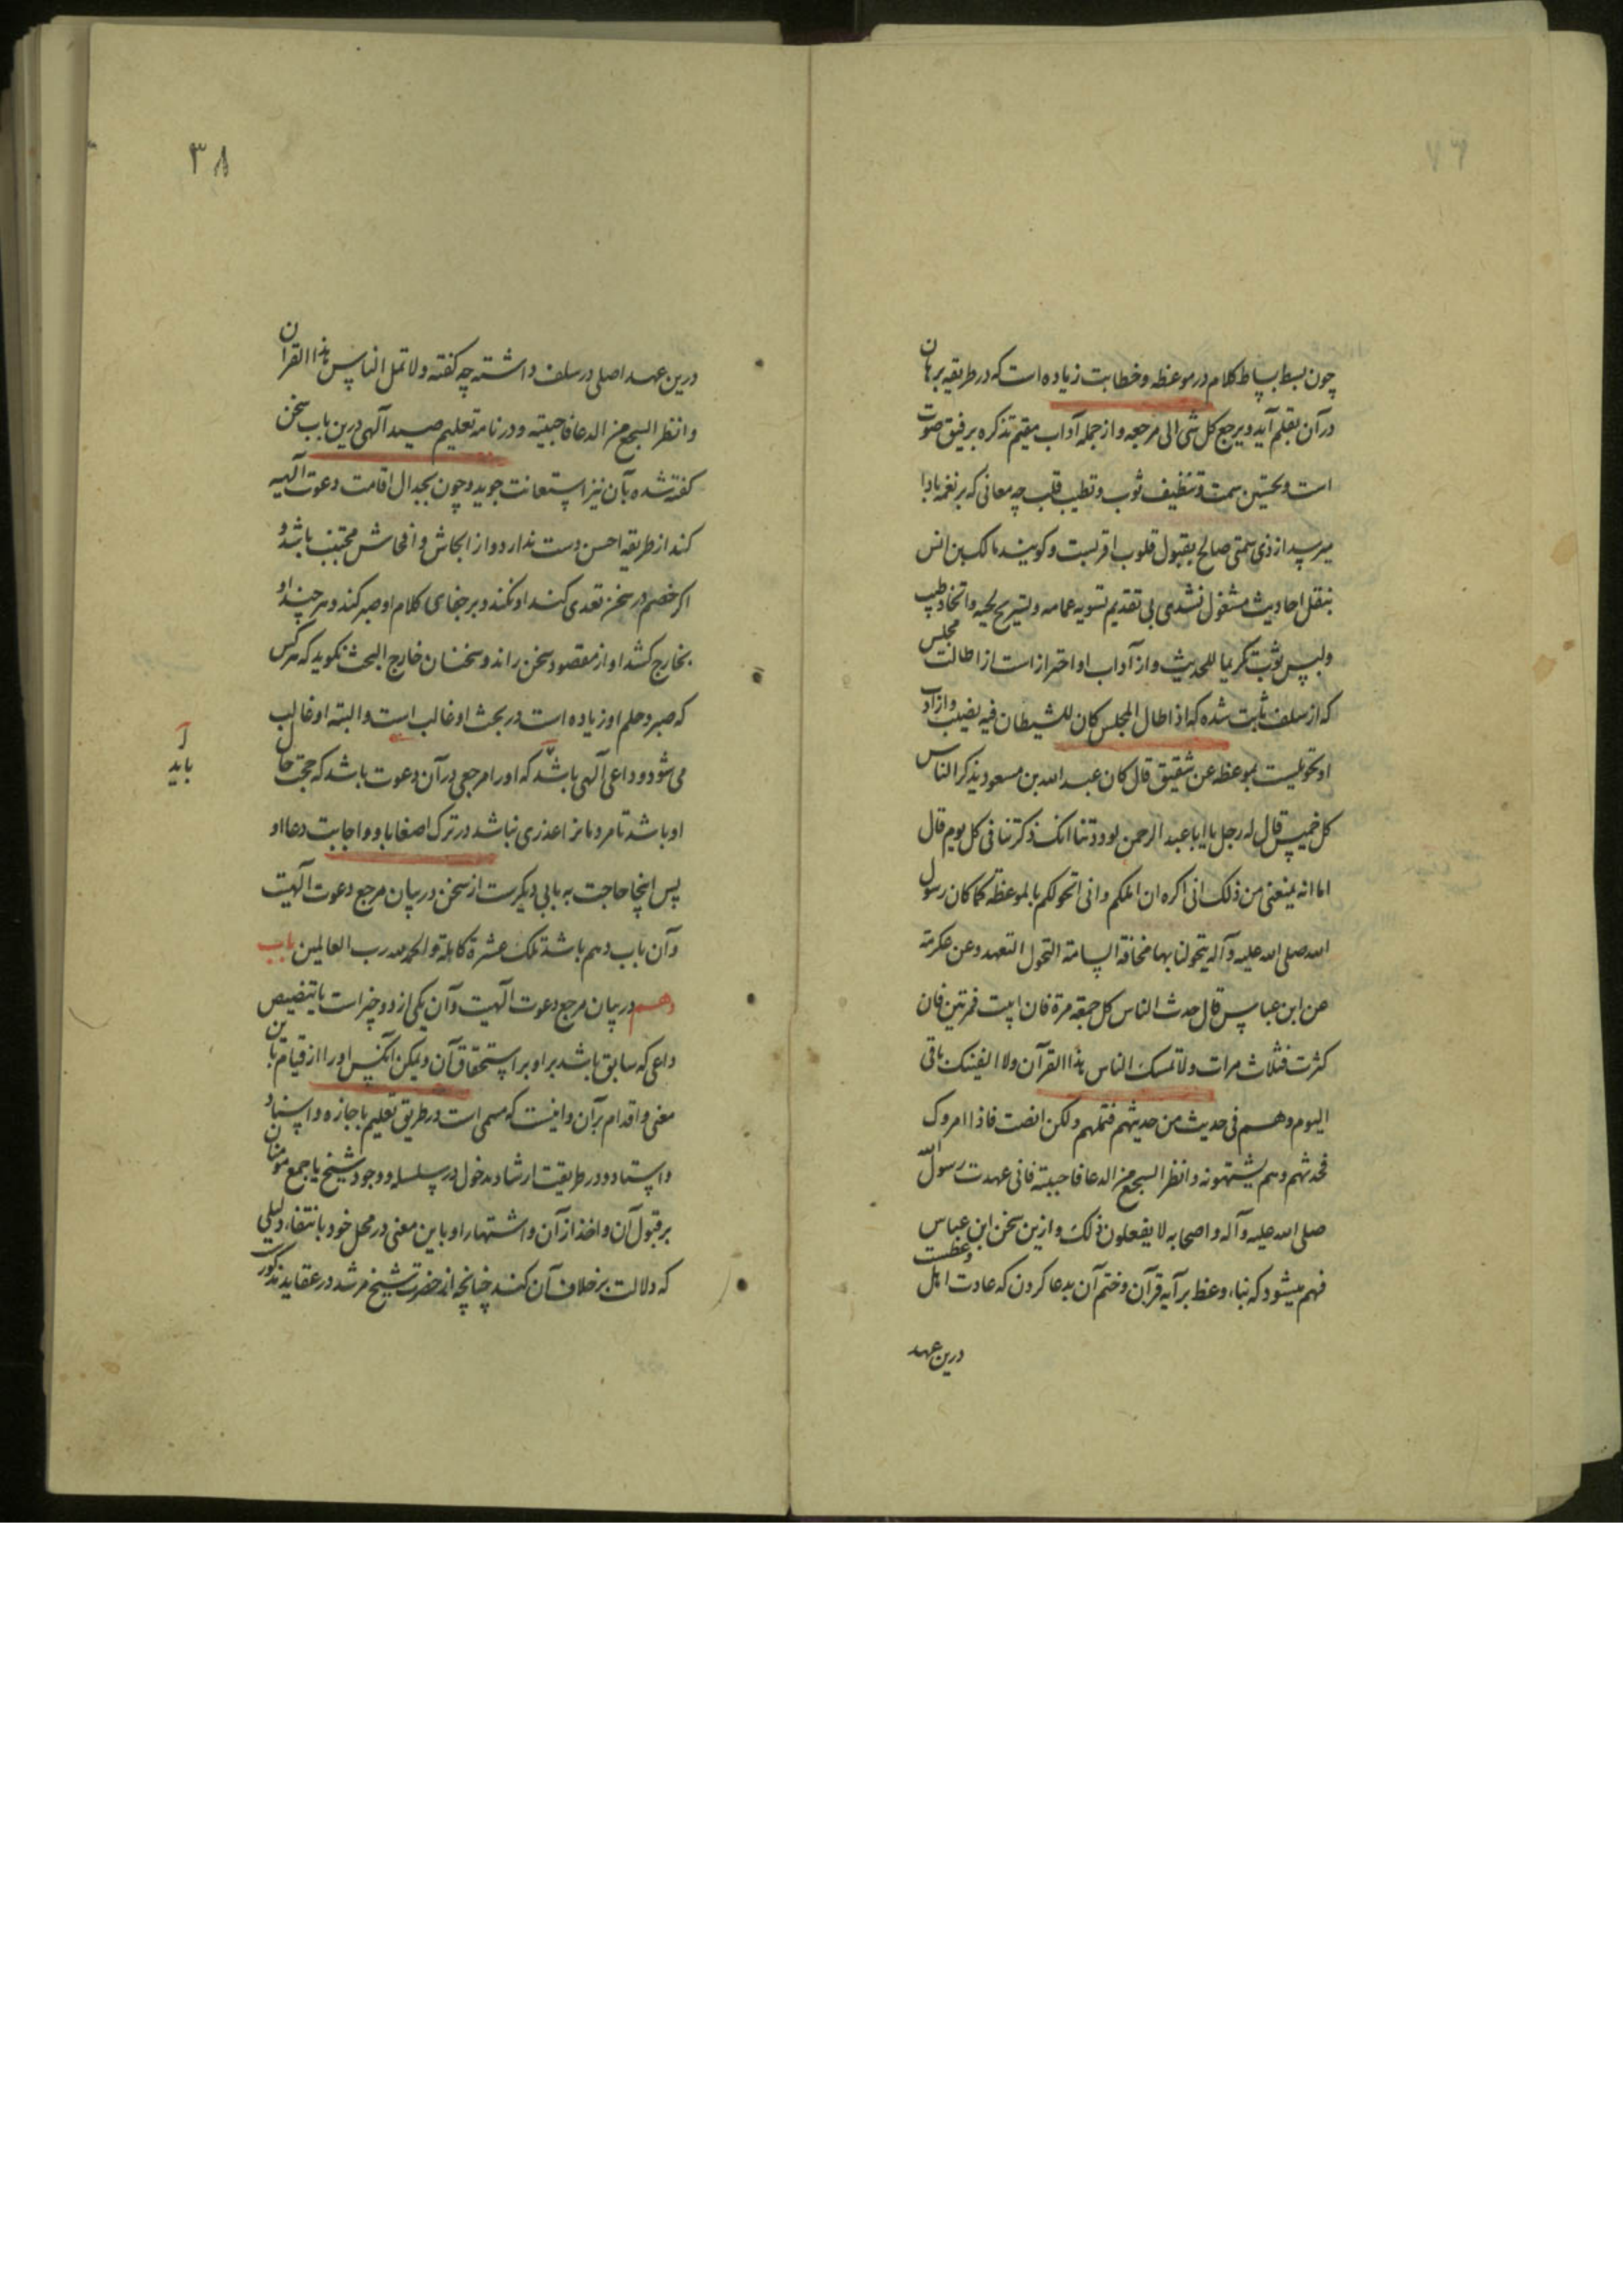 ٧٦
چون بسط بساط کلام در موعظه و خطابت زیاده است که در طریقه برهان
در آن بقلم آید ویرجع کل شی الی مرجعه و از جمله آداب مقیم تذکره ترفیق صوت
است و تحسین سمت و تنظیف ثوب و تطیب قلب چه معانی که بر نغمه بادا
میرسد از ذی سمتی صالح بقبول قلوب اقربست و کویند مالک بن انس
بنقل احادیث مشغول نشدی بی تقدیم تسویه عمامه و تسریح لحیه و اتخاذ طیب
ولبس ثوب تکریما للحدیث و از آداب او احتراز است از اطالت مجلس
که از سلف ثابت شده که اذا طال المجلس کان للشیطان فیه نصیب و از آداب
او تخولیست بموعظه عن شقیق قال کان عبد الله بن مسعود یذکر الناس
کل خمیس قال له رجل یا ابا عبد الرحمن لوددتنا انک ذکرتنا فی کل یوم قال
اما انه یمنعنی من ذلک انی اکره ان املکم وانی اتخولکم بالموعظه کما کان رسول
الله صلی الله علیه وآله یتخولنا بها مخافة السامة التخول التعهد وعن عکرمة
عن ابن عباس قال حدث الناس کل جمعة مرة فان ابیت فمرتین فان
کثرت فثلاث مرات ولا تمسک الناس هذا القرآن ولا الفینک تاتی
الیوم وهم فی حدیث من حدیثهم فتملهم ولکن انصت فاذا امروک
فحدثهم وهم یشتهونه وانظر السجع من الدعا فاجتنبه فانی عهدت رسول الله
صلی الله علیه وآله واصحابه لا یفعلون ذلک و ازین سخن ابن عباس
فهم میشود که بناء وعظ بر آیه قرآن و ختم آن بدعا کردن که عادت اهل وعظست
درین عهد
٣٨
درین عهد اصلی در سلف داشته چه کفته ولا تمل الناس هذا القرآن
وانظر السجع من الدعا فاجتنبه و در نامه تعلیم صید آلهی درین باب سخن
کفته شده بآن نیز استعانت جوید و چون بجدال اقامت دعوت آلهیه
کند از طریقه احسن دست ندارد و از ایحاش و افحاش مجتنب باشد و
اکر خصم در سخن تعدی کند او نکند و بر جفای کلام او صبر کند و هر چند او
بخارج کشد او از مقصود سخن راند و سخنان خارج البحث نکوید که هر کس
که صبر و حلم او زیاده است در بحث او غالب است و البته او غالب
می شود و داعی آلهی باشد که او را مرجعی در آن دعوت باشد که حجت حال
آ
باید
او باشد تا مردمانرا عذری نباشد در ترک اصغا باو و اجابت دعا او
پس اینجا حاجت به بابی دیکرست از سخن در بیان مرجع دعوت آلهیت
و آن باب دهم باشد تلک عشرة کاملة والحمد لله رب العالمین باب
دهم در بیان مرجع دعوت آلهیت و آن یکی از دو چیز است یا تنصیص
داعی که سابق باشد بر او بر استحقاق آن و تمکین آنکس او را از قیام باین
معنی و اقدام بر آن و اینست که مسمی است در طریق تعلیم باجازه و اسناد
و استاد و در طریقت ارشاد بدخول در سلسله و وجود شیخ یا جمع مومنان
بر قبول آن و اخذ از آن و اشتهار او باین معنی در محل خود با انتفاء دلیلی
که دلالت بر خلاف آن کند چنانچه از حضرت شیخ مرشد در عقاید مذکورست